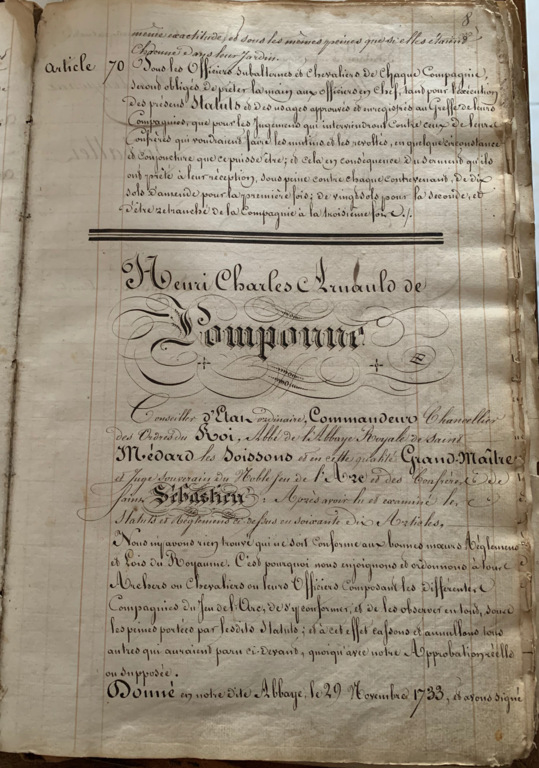 8
même exactitude, et sous les mêmes peines que si elles étaient
données dans leur Jardin.
Article 70 Tous les Officiers Subalternes et Chevaliers de Chaque Compagnie,
seront obligés de prêter la main aux Officiers en Chef, tant pour l'exécution
des présens Statuts et des usages approuvés et enregistrés au Greffe de leurs
Compagnies, que pour les Jugemens qui interviendront Contre ceux de leurs
Confrères qui voudraient faire les mutins et les révoltés, en quelque circonstance
et conjoncture que ce puisse être; et cela en conséquence du serment qu'ils
ont prêté à leur réception, sous peine contre chaque contrevenant, de dix
sols d'amende pour la première fois; de vingt sols pour la seconde, et
d'être retranché de la Compagnie à la troisième fois ./.
Henri Charles Arnauld de
Pomponne
Conseiller d'Etat ordinaire, Commandeur Chancellier
des Ordres du Roi, Abbé de l'Abbaye Royale de Saint
Médard les Soissons et en cette qualité Grand-Maître
et Juge Souverain du Noble Jeu de l'Arc et des Confréries de
Saint Sébastien; Après avoir lu et examiné les
Statuts et Règlemens ci-dessus en soixante-dix Articles,
Nous n'y avons rien trouvé qui ne soit Conforme aux bonnes mœurs Règlemens
et Lois du Royaume. C'est pourquoi nous enjoignons et ordonnons à tous
Archers ou Chevaliers ou leurs Officiers Composant les différentes
Compagnies du Jeu de l'Arc, de s'y conformer, et de les observer en tout, sous
les peines portées par lesdits Statuts; et à cet effet cassons et annullons tous
autres qui auraient paru ci-devant, quoiqu'avec notre Approbation réelle
ou supposée.
Donné en notre dite Abbaye, le 29 Novembre 1733, et avons signé